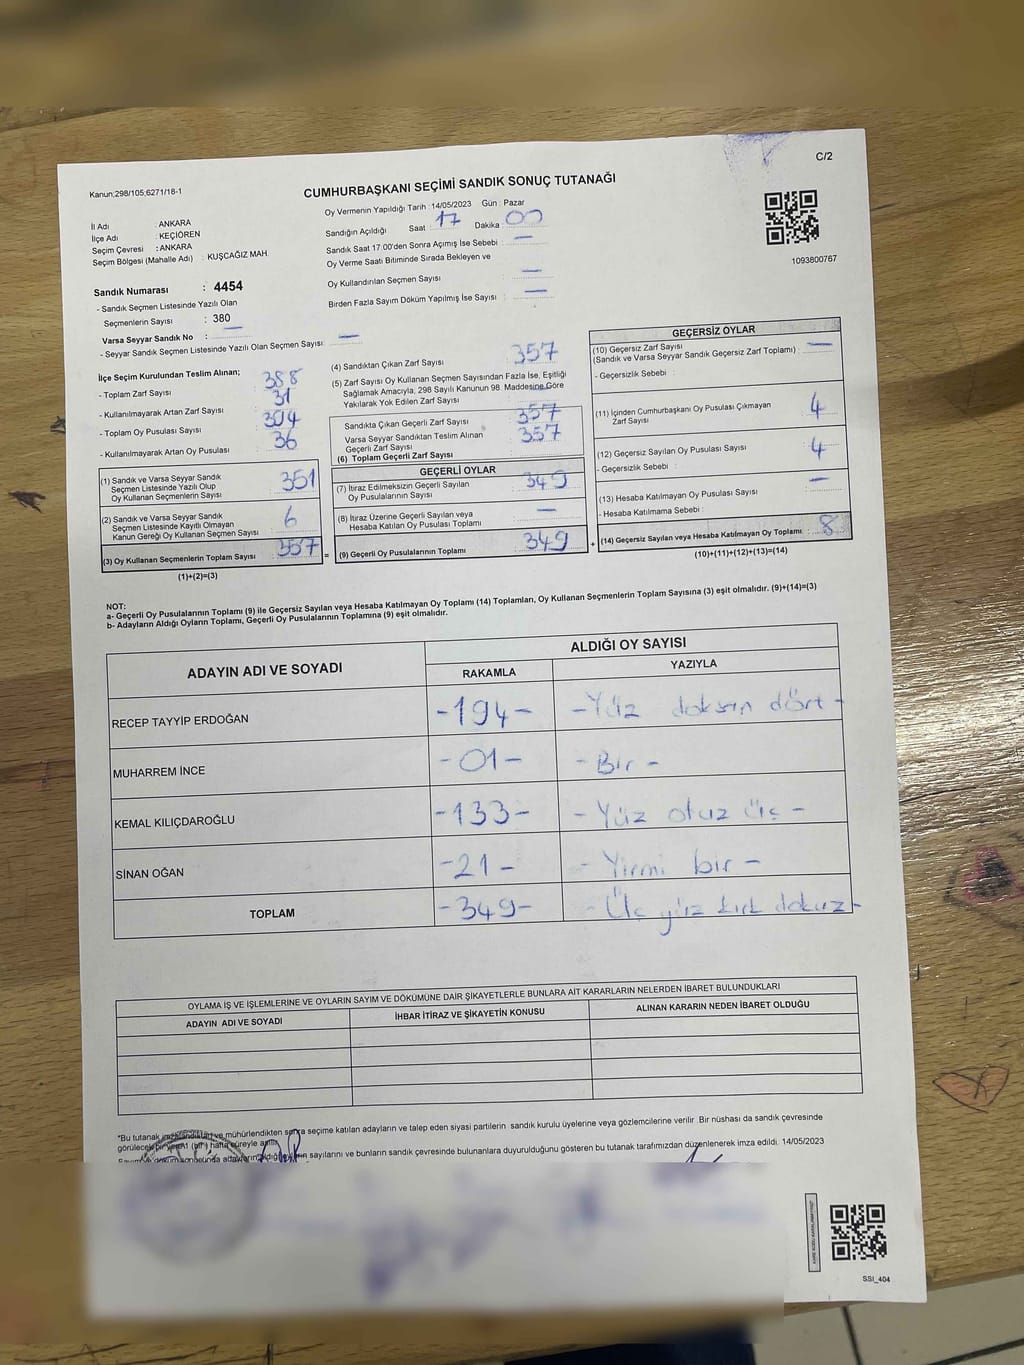 C/2
Kanun;298/105;6271/18-1
CUMHURBAŞKANI SEÇİMİ SANDIK SONUÇ TUTANAĞI
İl Adı : ANKARA
İlçe Adı : KEÇİÖREN
Seçim Çevresi : ANKARA
Seçim Bölgesi (Mahalle Adı) : KUŞCAĞIZ MAH.
Oy Vermenin Yapıldığı Tarih : 14/05/2023 Gün : Pazar
Sandığın Açıldığı Saat : 17 Dakika : 00
Sandık Saat 17:00'den Sonra Açımış İse Sebebi : —
Oy Verme Saati Bitiminde Sırada Bekleyen ve
Oy Kullandırılan Seçmen Sayısı : —
Birden Fazla Sayım Döküm Yapılmış İse Sayısı : —
1093800767
Sandık Numarası : 4454
- Sandık Seçmen Listesinde Yazılı Olan
Seçmenlerin Sayısı : 380
Varsa Seyyar Sandık No : —
- Seyyar Sandık Seçmen Listesinde Yazılı Olan Seçmen Sayısı: —
İlçe Seçim Kurulundan Teslim Alınan;
- Toplam Zarf Sayısı : 388
- Kullanılmayarak Artan Zarf Sayısı : 31
- Toplam Oy Pusulası Sayısı :
- Kullanılmayarak Artan Oy Pusulası : 36
(1) Sandık ve Varsa Seyyar Sandık
Seçmen Listesinde Yazılı Olup
Oy Kullanan Seçmenlerin Sayısı : 351
(2) Sandık ve Varsa Seyyar Sandık
Seçmen Listesinde Kayıtlı Olmayan
Kanun Gereği Oy Kullanan Seçmen Sayısı : 6
(3) Oy Kullanan Seçmenlerin Toplam Sayısı : 357
(1)+(2)=(3)
=
(4) Sandıktan Çıkan Zarf Sayısı : 357
(5) Zarf Sayısı Oy Kullanan Seçmen Sayısından Fazla İse, Eşitliği
Sağlamak Amacıyla, 298 Sayılı Kanunun 98. Maddesine Göre
Yakılarak Yok Edilen Zarf Sayısı : —
Sandıkta Çıkan Geçerli Zarf Sayısı : 357
Varsa Seyyar Sandıktan Teslim Alınan
Geçerli Zarf Sayısı : 357
(6) Toplam Geçerli Zarf Sayısı :
GEÇERLİ OYLAR
(7) İtiraz Edilmeksizin Geçerli Sayılan
Oy Pusulalarının Sayısı : 349
(8) İtiraz Üzerine Geçerli Sayılan veya
Hesaba Katılan Oy Pusulası Toplamı : —
(9) Geçerli Oy Pusulalarının Toplamı : 349
+
GEÇERSİZ OYLAR
(10) Geçersiz Zarf Sayısı
(Sandık ve Varsa Seyyar Sandık Geçersiz Zarf Toplamı) : —
- Geçersizlik Sebebi :
(11) İçinden Cumhurbaşkanı Oy Pusulası Çıkmayan
Zarf Sayısı : 4
(12) Geçersiz Sayılan Oy Pusulası Sayısı : 4
- Geçersizlik Sebebi :
(13) Hesaba Katılmayan Oy Pusulası Sayısı : —
- Hesaba Katılmama Sebebi :
(14) Geçersiz Sayılan veya Hesaba Katılmayan Oy Toplamı : 8
(10)+(11)+(12)+(13)=(14)
NOT:
a- Geçerli Oy Pusulalarının Toplamı (9) ile Geçersiz Sayılan veya Hesaba Katılmayan Oy Toplamı (14) Toplamları, Oy Kullanan Seçmenlerin Toplam Sayısına (3) eşit olmalıdır. (9)+(14)=(3)
b- Adayların Aldığı Oyların Toplamı, Geçerli Oy Pusulalarının Toplamına (9) eşit olmalıdır.
ADAYIN ADI VE SOYADI
ALDIĞI OY SAYISI
RAKAMLA YAZIYLA
RECEP TAYYİP ERDOĞAN -194- -Yüz doksan dört-
MUHARREM İNCE -01- -Bir-
KEMAL KILIÇDAROĞLU -133- -Yüz otuz üç-
SİNAN OĞAN -21- -Yirmi bir-
TOPLAM -349- -Üç yüz kırk dokuz-
OYLAMA İŞ VE İŞLEMLERİNE VE OYLARIN SAYIM VE DÖKÜMÜNE DAİR ŞİKAYETLERLE BUNLARA AİT KARARLARIN NELERDEN İBARET BULUNDUKLARI
ADAYIN ADI VE SOYADI İHBAR İTİRAZ VE ŞİKAYETİN KONUSU ALINAN KARARIN NEDEN İBARET OLDUĞU
*Bu tutanak ve mühürlendikten sonra seçime katılan adayların ve talep eden siyasi partilerin sandık kurulu üyelerine veya gözlemcilerine verilir. Bir nüshası da sandık çevresinde
görülecek bir yere 1 (bir) hafta süreyle asılır.
sayılarını ve bunların sandık çevresinde bulunanlara duyurulduğunu gösteren bu tutanak tarafımızdan düzenlenerek imza edildi. 14/05/2023
SSI_404